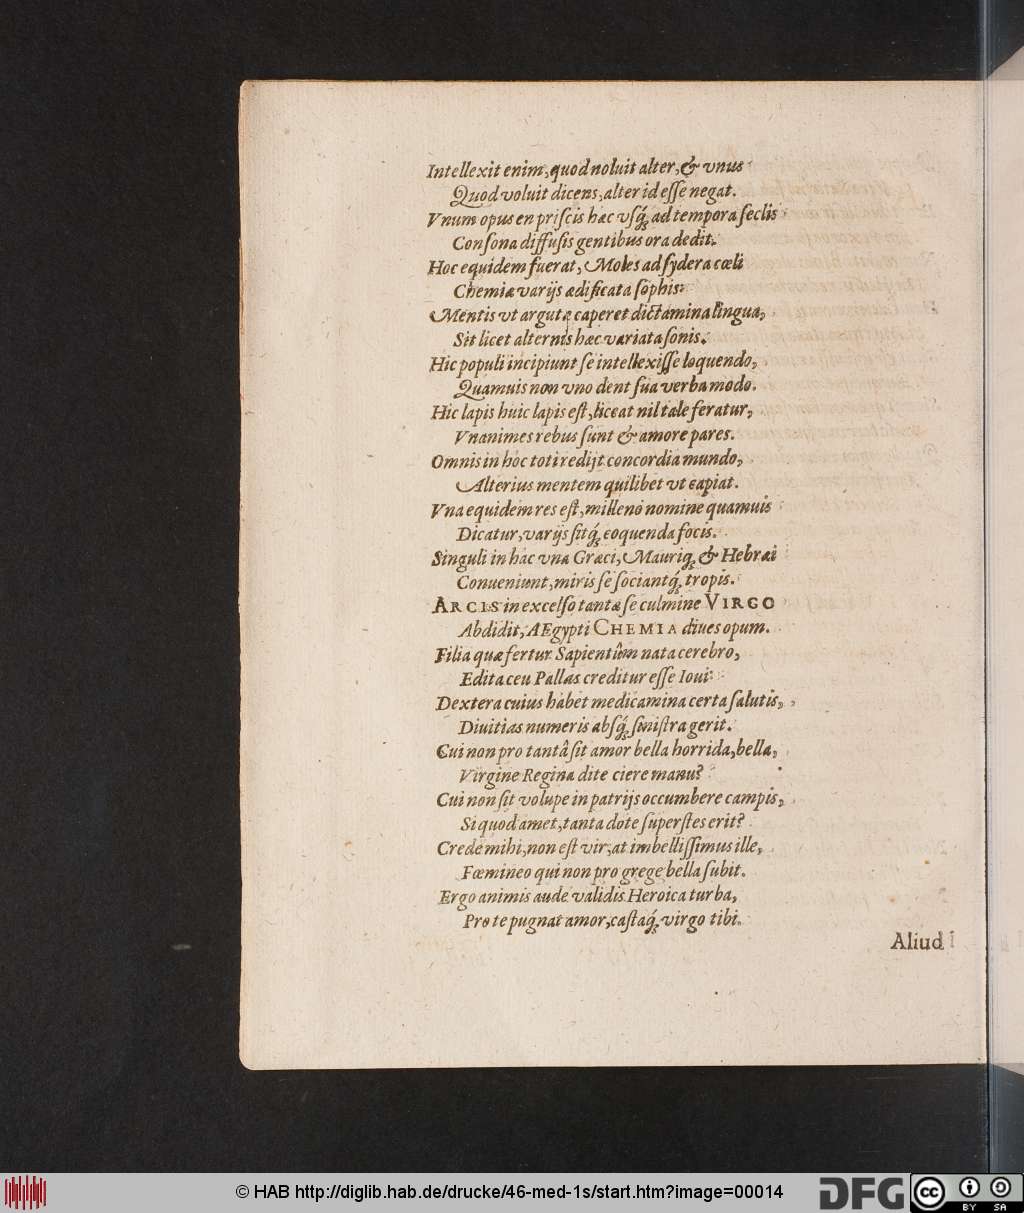 Intellexit enim, quod noluit alter, & vnus
Quod voluit dicens, alter id eſſe negat.
Vnum opus en priſcis hæc vſq́; ad tempora ſeclis
Conſona diffuſis gentibus ora dedit.
Hoc equidem fuerat, Moles ad ſydera cœli
Chemiæ varijs ædificata ſophis:
Mentis vt argutæ caperet dictamina lingua,
Sit licet alternis hæc variata ſonis.
Hic populi incipiunt ſe intellexiſſe loquendo,
Quamuis non vno dent ſua verba modo.
Hic lapis huic lapis eſt, liceat nil tale feratur,
Vnanimes rebus ſunt & amore pares.
Omnis in hoc toti redijt concordia mundo,
Alterius mentem quilibet vt capiat.
Vna equidem res eſt, milleno nomine quamuis
Dicatur, varijs ſitq́; coquenda focis.
Singuli in hâc vna Græci, Mauriq; & Hebræi
Conueniunt, miris ſe ſociantq́; tropis.
ARCIS in excelſo tantæ ſe culmine VIRGO
Abdidit, AEgypti CHEMIA diues opum.
Filia quæ fertur Sapientûm nata cerebro,
Edita ceu Pallas creditur eſſe Ioui:
Dextera cuius habet medicamina certa ſalutis,
Diuitias numeris abſq́; ſiniſtra gerit.
Cui non pro tantâ ſit amor bella horrida, bella,
Virgine Regina dite ciere manu?
Cui non ſit volupe in patrijs occumbere campis,
Si quod amet, tanta dote ſuperſtes erit?
Crede mihi, non eſt vir, at imbelliſſimus ille,
Fœmineo qui non pro grege bella ſubit.
Ergo animis aude validis Heroica turba,
Pro te pugnat amor, caſtaq́; virgo tibi.
Aliud
© HAB http://diglib.hab.de/drucke/46-med-1s/start.htm?image=00014
DFG
cc BY SA